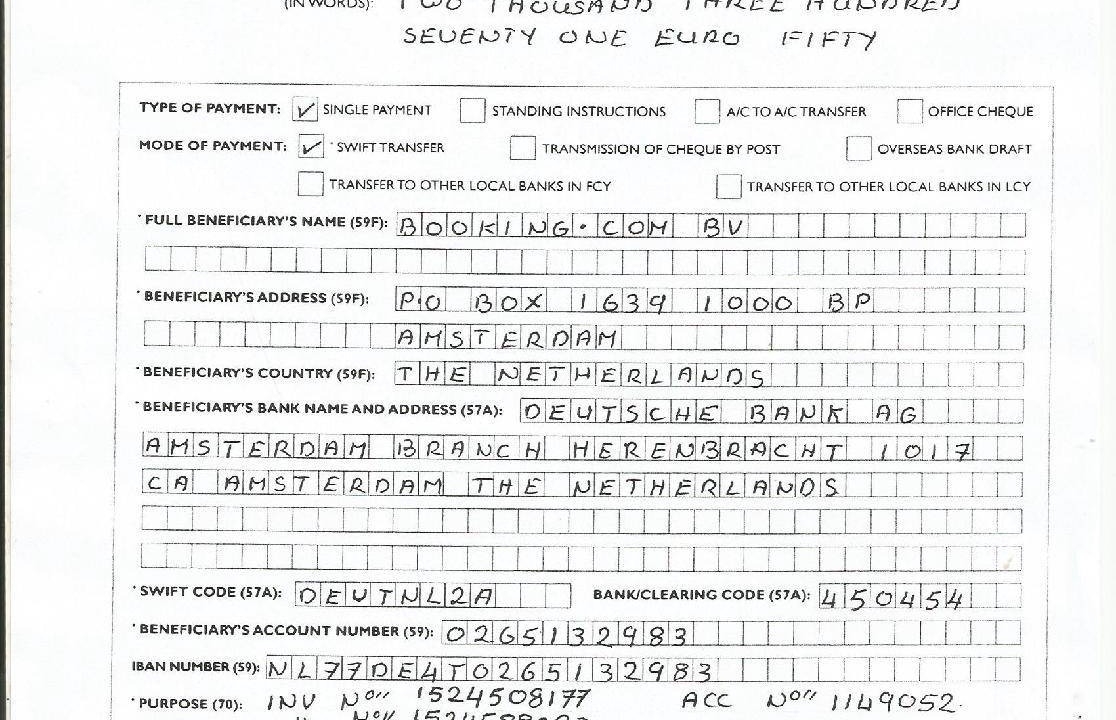 (IN WORDS): TWO THOUSAND THREE HUNDRED
SEVENTY ONE EURO FIFTY
TYPE OF PAYMENT: ✓ SINGLE PAYMENT STANDING INSTRUCTIONS A/C TO A/C TRANSFER OFFICE CHEQUE
MODE OF PAYMENT: ✓ *SWIFT TRANSFER TRANSMISSION OF CHEQUE BY POST OVERSEAS BANK DRAFT
TRANSFER TO OTHER LOCAL BANKS IN FCY TRANSFER TO OTHER LOCAL BANKS IN LCY
*FULL BENEFICIARY'S NAME (59F): BOOKING.COM BV
*BENEFICIARY'S ADDRESS (59F): P.O BOX 1639 1000 BP
AMSTERDAM
*BENEFICIARY'S COUNTRY (59F): THE NETHERLANDS
*BENEFICIARY'S BANK NAME AND ADDRESS (57A): DEUTSCHE BANK AG
AMSTERDAM BRANCH HERENBRACHT 1017
CA AMSTERDAM THE NETHERLANDS
*SWIFT CODE (57A): DEUTNL2A BANK/CLEARING CODE (57A): 450454
*BENEFICIARY'S ACCOUNT NUMBER (59): 0265132983
IBAN NUMBER (59): NL77DE4T0265132983
*PURPOSE (70): INV No" 1524508177 ACC No" 1149052.